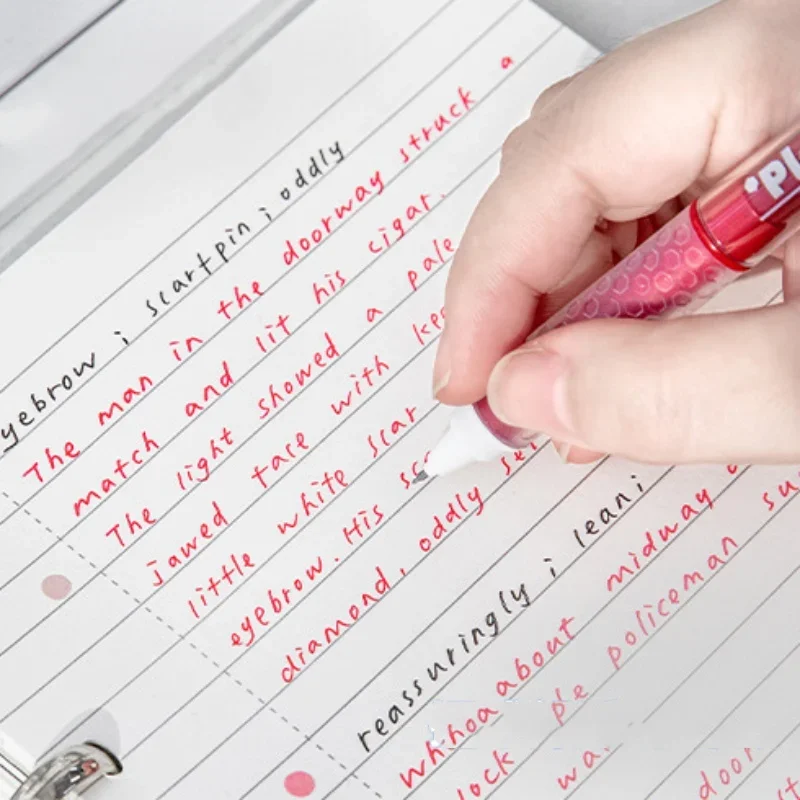 eyebrow ; scarfpin ; oddly
The man in the doorway struck a
match and lit his cigar.
The light showed a pale
jawed face with kee
little white scar
eyebrow. His sc
diamond, oddly se
reassuringly ; lean ;
whhoa about midway
lock ple policeman su
wa. door